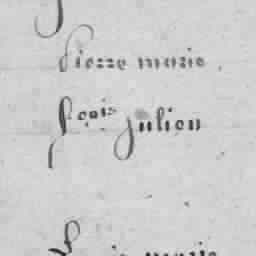 Pierre marie
Louis Julien
Louis marie